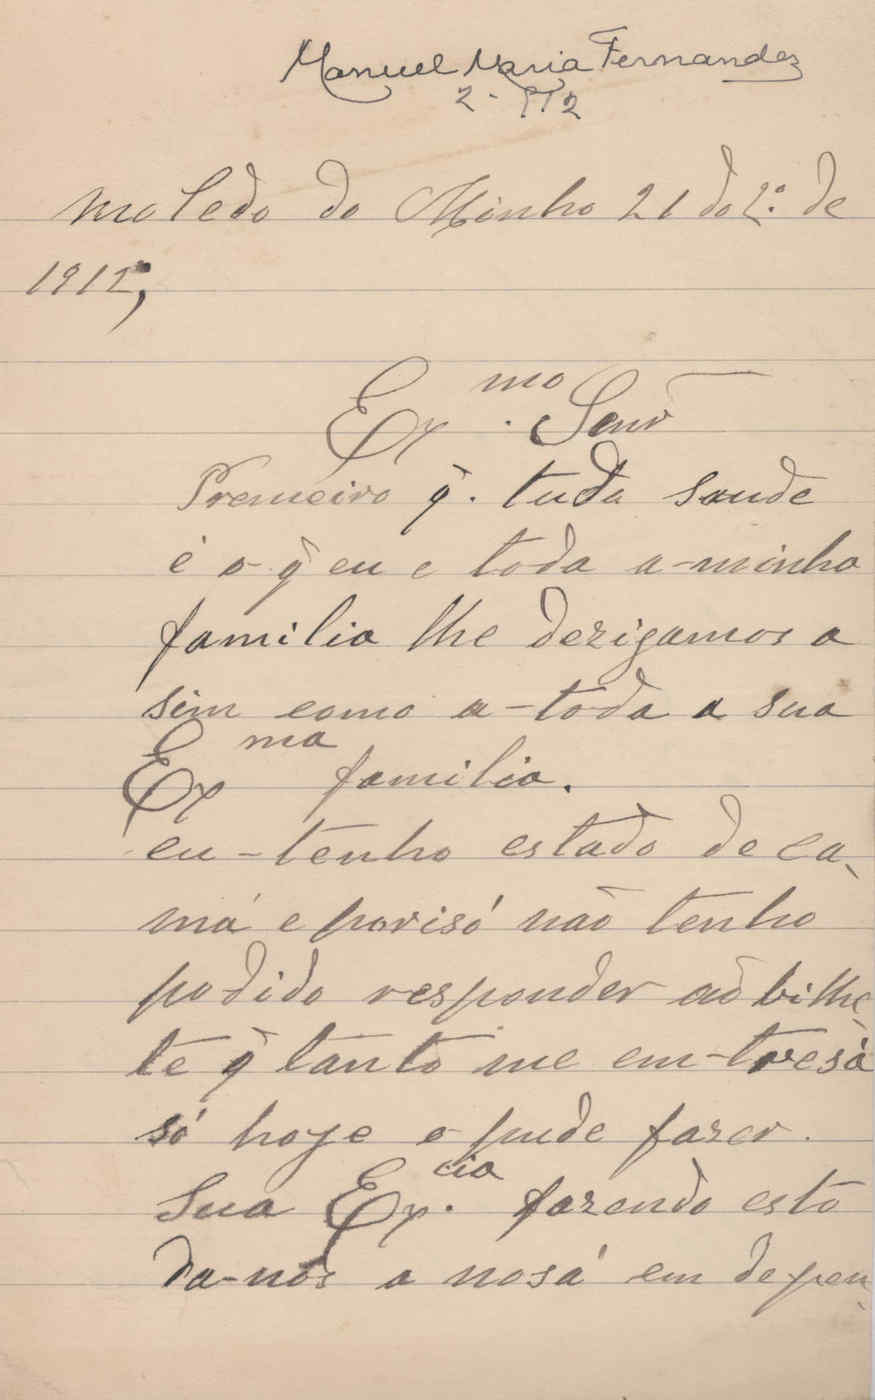 Manuel Maria Fernandez
2-912
Moledo do Minho 21 do 2.º de
1912;
Ex.mo Senr
Premeiro q̃. tuda saude
é o-q̃ eu e toda a-minha
familia lhe dezigamos a
sim como a-toda a sua
Exma familia.
eu-tenho estado de ca,
má e porisó não tenho
podido responder aõ bilhe,
te q̃ tanto me em-tresà
só hoje o pude fazer.
Sua Ex.cia fazendo esto
da-nós a nosá em depen,